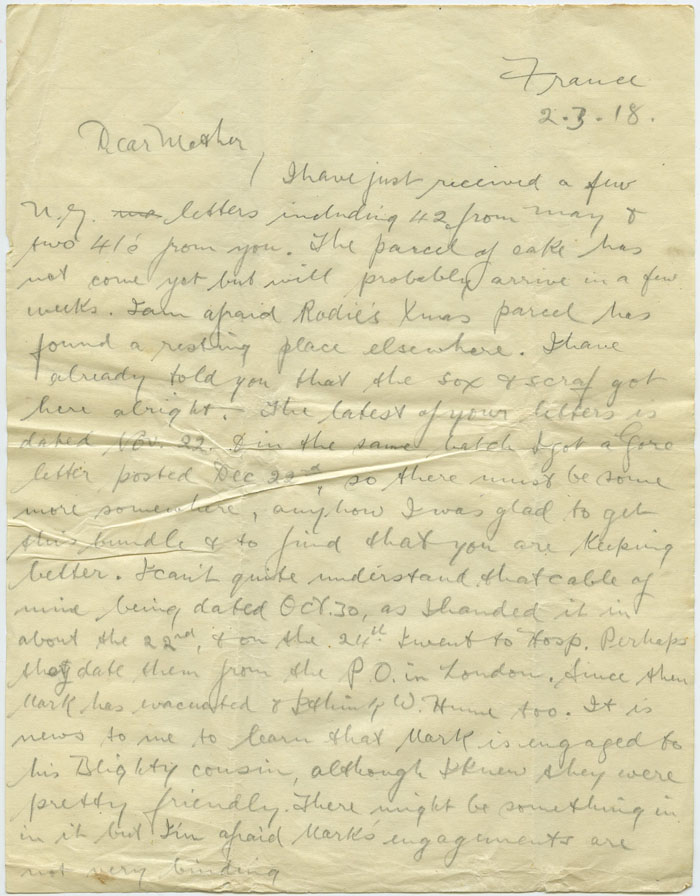 France
2.3.18.
Dear Mother,
I have just received a few
N.Z. letters including 42 from May &
two 41's from you. The parcel of cake has
not come yet but will probably arrive in a few
weeks. I am afraid Rodie's Xmas parcel has
found a resting place elsewhere. I have
already told you that the sox & scraf got
here alright. The latest of your letters is
dated Nov. 22. & in the same batch I got a Gore
letter posted Dec 22nd, so there must be some
more somewhere, anyhow I was glad to get
this bundle & to find that you are keeping
better. I can't quite understand that cable of
mine being dated OCT. 30, as I handed it in
about the 22nd, & on the 24th I went to Hosp. Perhaps
they date them from the P.O. in London. Since then
Mark has evacuated & I think W. Hume too. It is
news to me to learn that Mark is engaged to
his Blighty cousin, although I knew they were
pretty friendly. There might be something in
in it but I'm afraid Marks engagements are
not very binding